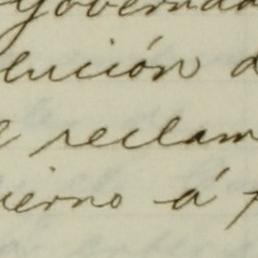 Governad
olución d
reclam
ierno á